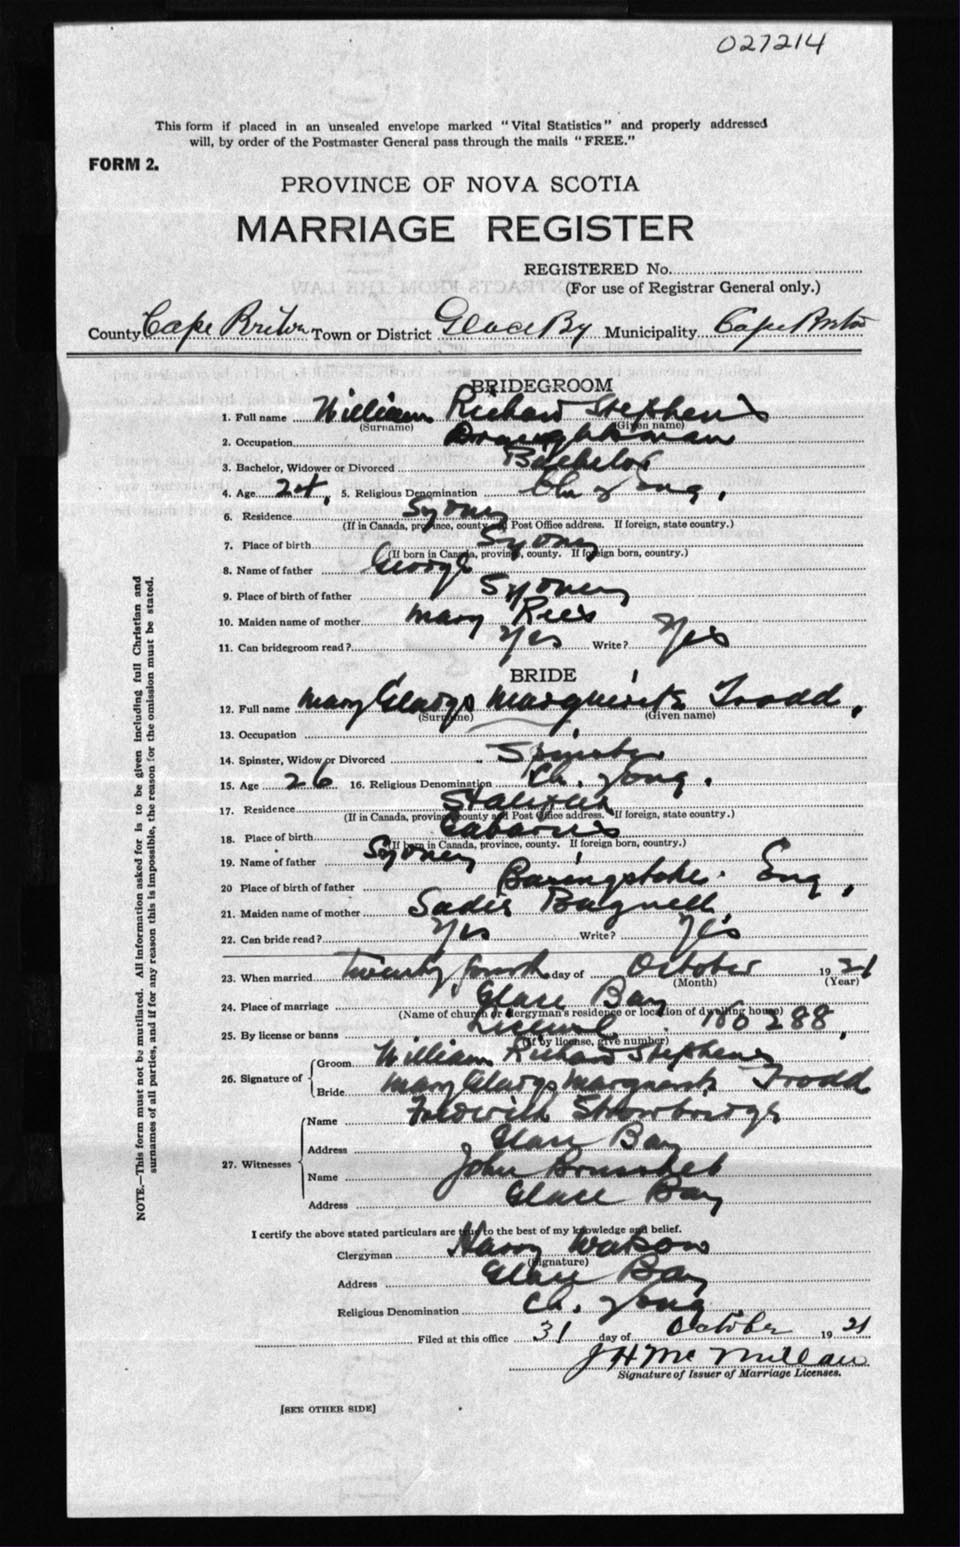 027214
This form if placed in an unsealed envelope marked "Vital Statistics" and properly addressed
will, by order of the Postmaster General pass through the mails "FREE."
FORM 2.
PROVINCE OF NOVA SCOTIA
MARRIAGE REGISTER
REGISTERED No.
(For use of Registrar General only.)
County Cape Breton Town or District Glace Bay Municipality Cape Breton
BRIDEGROOM
1. Full name William Richard Stephens
(Surname) (Given name)
2. Occupation Draughtsman
3. Bachelor, Widower or Divorced Bachelor
4. Age 24. 5. Religious Denomination Ch of Eng.
6. Residence Sydney
(If in Canada, province, county and Post Office address. If foreign, state country.)
7. Place of birth Sydney
(If born in Canada, province, county. If foreign born, country.)
8. Name of father George
9. Place of birth of father Sydney
10. Maiden name of mother Mary Rees
11. Can bridegroom read? Yes Write? Yes
BRIDE
12. Full name Mary Gladys Marguerite Trodd.
(Surname) (Given name)
13. Occupation
14. Spinster, Widow or Divorced Spinster
15. Age 26 16. Religious Denomination Ch. of Eng.
17. Residence
(If in Canada, province, county and Post Office address. If foreign, state country.)
18. Place of birth Gabarus
(If born in Canada, province, county. If foreign born, country.)
19. Name of father Sydney
20 Place of birth of father Basingstoke. Eng.
21. Maiden name of mother Sadie Bagnell
22. Can bride read? Yes Write? Yes
23. When married Twenty fourth day of October 19 21
(Month) (Year)
24. Place of marriage Glace Bay
(Name of church or clergyman's residence or location of dwelling house)
25. By license or banns License. 160288.
(If by license, give number)
26. Signature of Groom William Richard Stephens
Bride Mary Gladys Marguerite Trodd
27. Witnesses Name Frederick Strowbridge
Address Glace Bay
Name John
Address Glace Bay
I certify the above stated particulars are true to the best of my knowledge and belief.
Clergyman Harry Watson
(Signature)
Address Glace Bay
Religious Denomination Ch. of Eng.
Filed at this office 31 day of October 19 21
J H McMillan
Signature of Issuer of Marriage Licenses.
[SEE OTHER SIDE]
NOTE.—This form must not be mutilated. All information asked for is to be given including full Christian and
surnames of all parties, and if for any reason this is impossible, the reason for the omission must be stated.